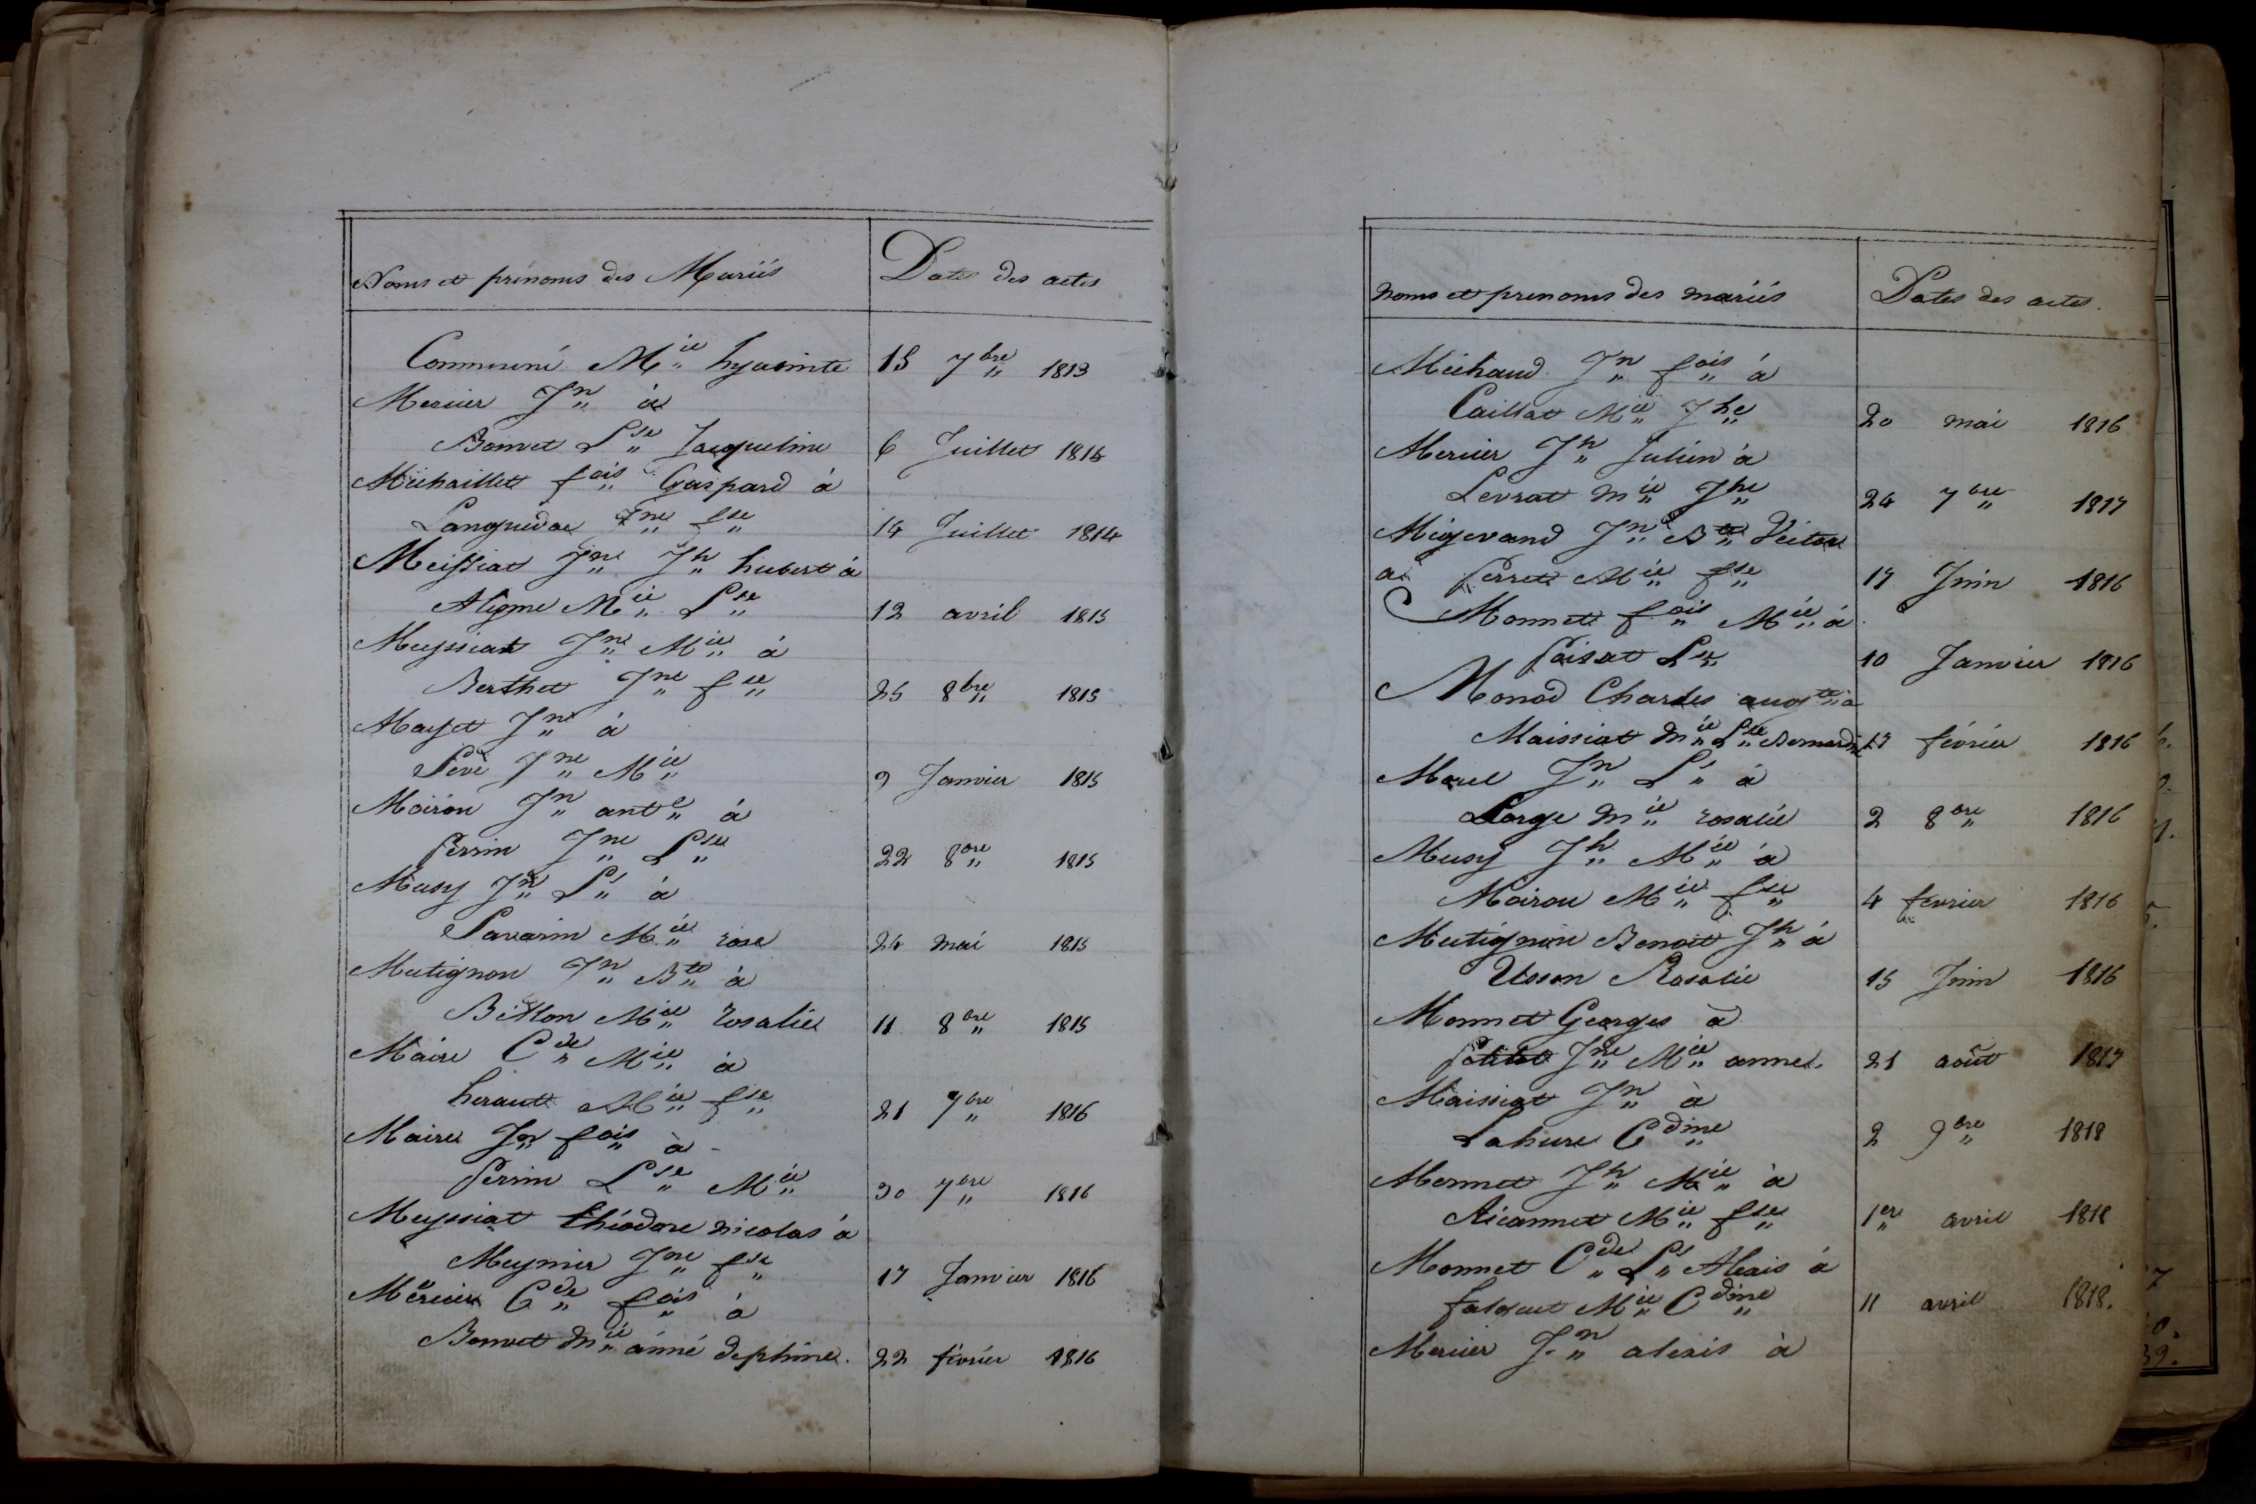 Noms et prénoms des Mariés Dates des actes
Communé Mie hyacinte 15 7bre 1813
Mercier Jn à
Bonnet Lse Jacqueline 6 Juillet 1814
Michaillet fois Gaspard à
Languedoc Jne fse 14 Juillet 1814
Meissiat Jne Jh hubert à
Aligne Mie Lse 12 avril 1815
Meyssiat Jne Mie à
Berthet Jne fse 25 8bre 1815
Mayet Jne à
Pevé Jne Mie 9 Janvier 1815
Moiron Jn ante à
Perrin Jne Lse 22 8bre 1815
Musy Jn Ls à
Savarin Mie rose 24 mai 1815
Mutignon Jn Bte à
Billon Mie rosalie 11 8bre 1815
Maire Cde Mie à
heraut Mie fse 21 7bre 1816
Maire Jn fois à
Perrin Lse Mie 30 7bre 1816
Meyssiat théodore nicolas à
Meynier Jne fse 17 Janvier 1816
Mercier Cde fois à
Bonnet mie anné delphine. 22 février 1816
noms et prenoms des mariés Dates des actes.
Michaud Jn fois à
Caillat Mie Jhe 20 mai 1816
Mercier Jh Julien à
Levrat mie Jhe 24 7bre 1817
Migevand Jn Bte Victor
a perret Mie fse 17 Juin 1816
Monnet fois Mie à
poisat Lse 10 Janvier 1816
Monod Charles augte à
Maissiat mie Lse Bernardine 17 février 1816
Morel Jn Ls à
Lorge mie rosalie 2 8bre 1816
Musy Jh Mie à
Moiron Mie fse 4 fevrier 1816
Mutignon Benoit Jh à
Usson Rosalie 15 Juin 1816
Monnet Georges à
Jne Mie anne. 21 août 1817
Maissiat Jn à
Lahure Cdine 2 9bre 1818
Monnet Jh Mie à
Aicannet Mie fse 1er avril 1818
Monnet Cde Ls Alexis à
falquet Mie Cdine 11 avril 1818.
Mercier Jn alexis à